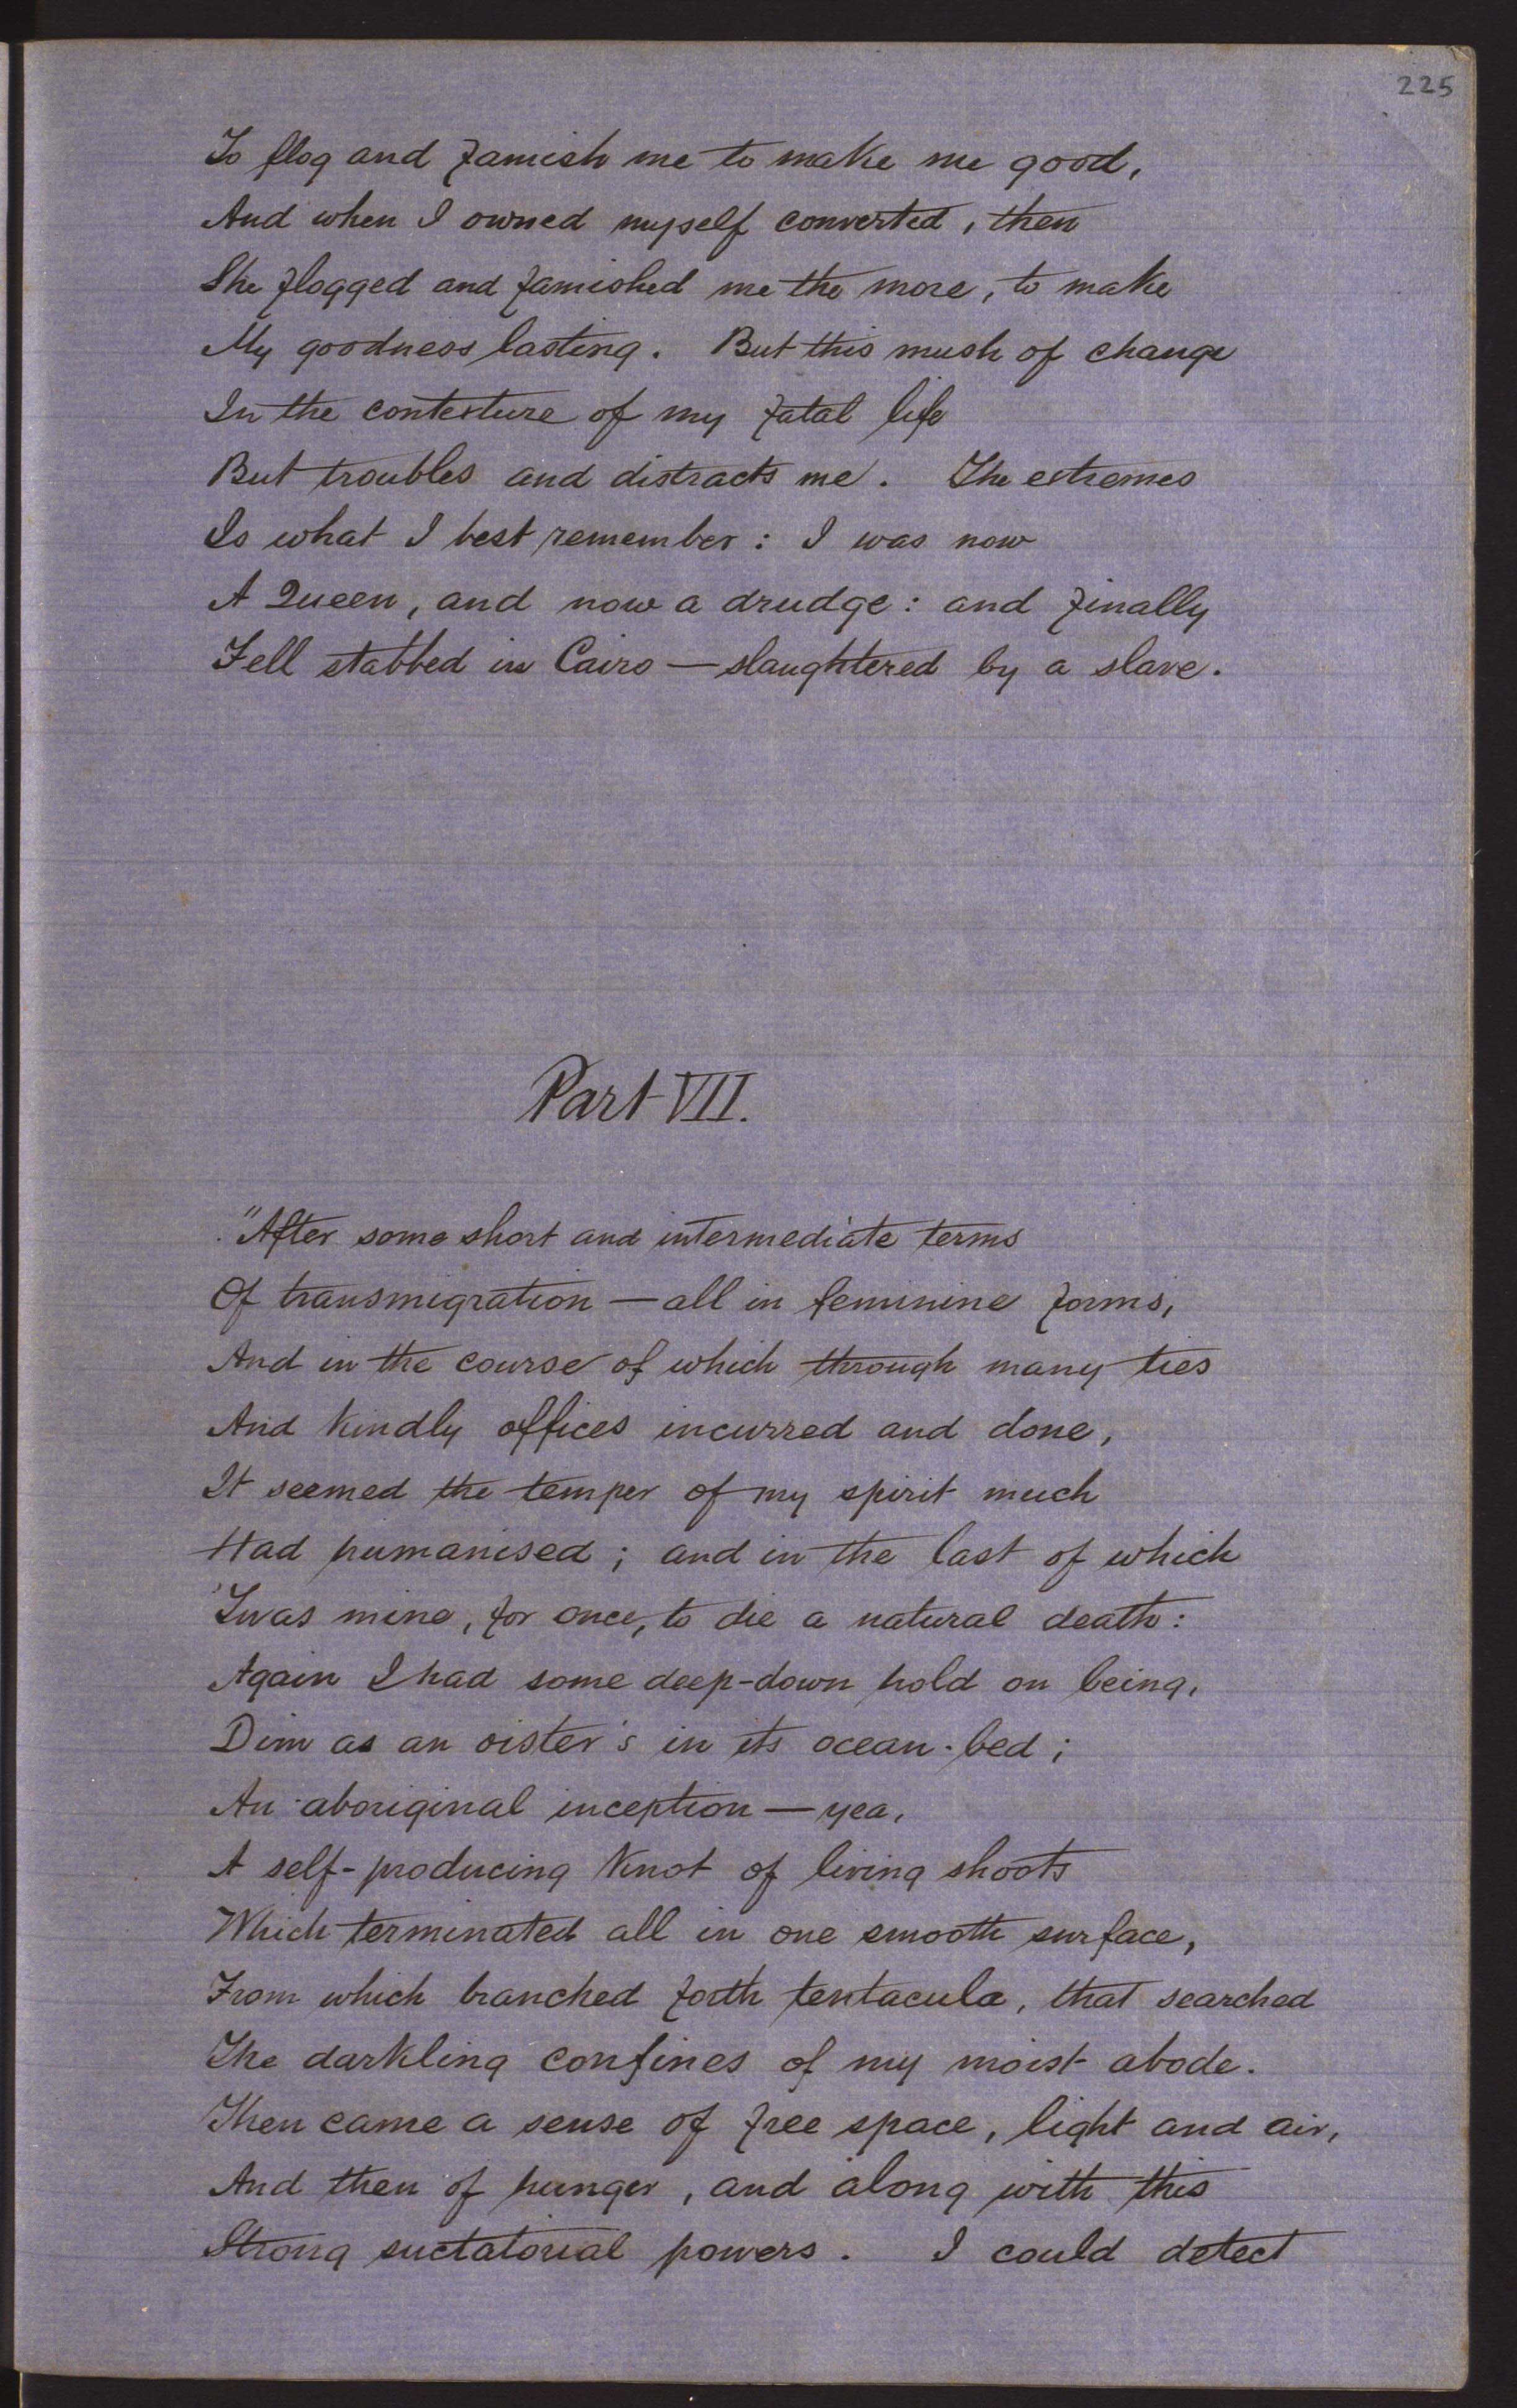 225
To flog and famish me to make me good,
And when I owned myself converted, then
She flogged and famished me the more, to make
My goodness lasting. But this mush of change
In the contexture of my fatal life
But troubles and distracts me. The extremes
Is what I best remember: I was now
A Queen, and now a drudge: and finally
Fell stabbed in Cairo — slaughtered by a slave.
Part VII.
"After some short and intermediate terms
Of transmigration — all in feminine forms,
And in the course of which through many ties
And kindly offices incurred and done,
It seemed the temper of my spirit much
Had humanised; and in the last of which
'Twas mine, for once, to die a natural death:
Again I had some deep-down hold on being,
Dim as an oister's in its ocean-bed;
An aboriginal inception — yea,
A self-producing knot of living shoots
Which terminated all in one smooth surface,
From which branched forth tentacula, that searched
The darkling confines of my moist abode.
Then came a sense of free space, light and air,
And then of hunger, and along with this
Strong suctatorial powers. I could detect